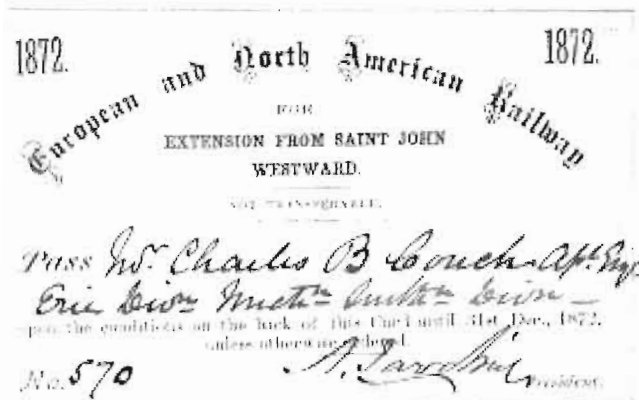 1872. 1872.
European and North American Railway
FOR
EXTENSION FROM SAINT JOHN
WESTWARD.
NOT TRANSFERABLE.
Pass Mr. Charles B Couch
Erie Divn
upon the conditions on the back of this Card until 31st Dec., 1872,
unless otherwise ordered.
No. 570 President.